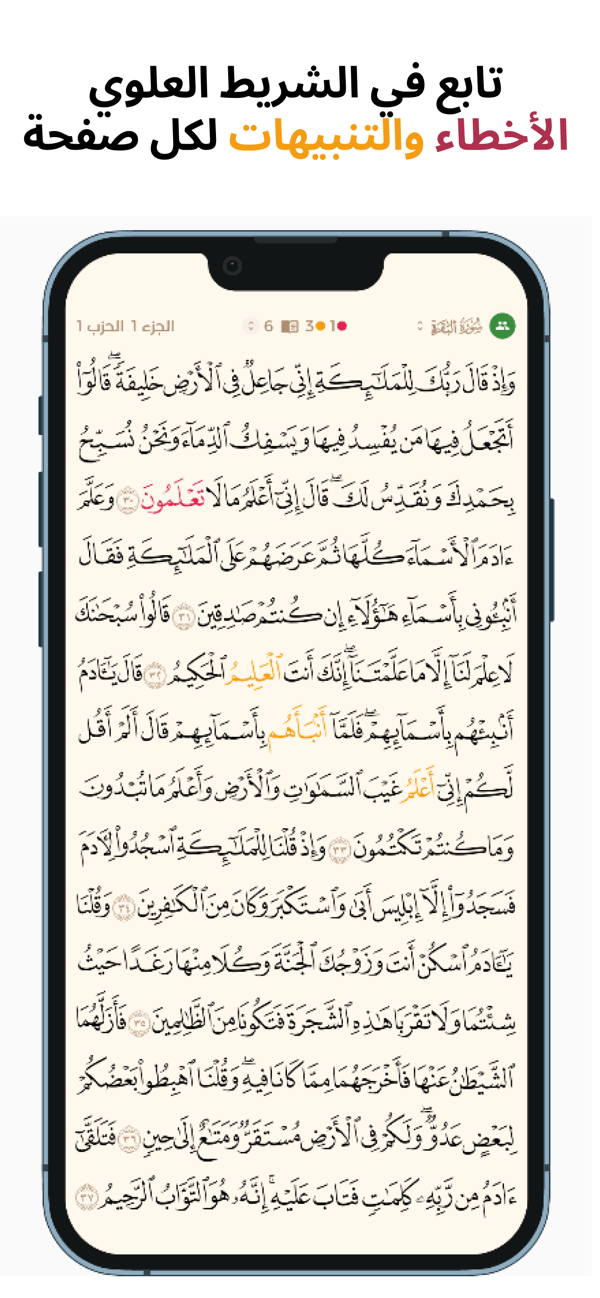 تابع في الشريط العلوي
الأخطاء والتنبيهات لكل صفحة
سُورَةُ البَقَرَةِ 1 3 6 الجزء 1 الحزب 1
وَإِذْ قَالَ رَبُّكَ لِلْمَلَٰٓئِكَةِ إِنِّى جَاعِلٌ فِى ٱلْأَرْضِ خَلِيفَةً ۖ قَالُوٓا۟
أَتَجْعَلُ فِيهَا مَن يُفْسِدُ فِيهَا وَيَسْفِكُ ٱلدِّمَآءَ وَنَحْنُ نُسَبِّحُ
بِحَمْدِكَ وَنُقَدِّسُ لَكَ ۖ قَالَ إِنِّىٓ أَعْلَمُ مَا لَا تَعْلَمُونَ ٣٠ وَعَلَّمَ
ءَادَمَ ٱلْأَسْمَآءَ كُلَّهَا ثُمَّ عَرَضَهُمْ عَلَى ٱلْمَلَٰٓئِكَةِ فَقَالَ
أَنۢبِـُٔونِى بِأَسْمَآءِ هَٰٓؤُلَآءِ إِن كُنتُمْ صَٰدِقِينَ ٣١ قَالُوا۟ سُبْحَٰنَكَ
لَا عِلْمَ لَنَآ إِلَّا مَا عَلَّمْتَنَآ ۖ إِنَّكَ أَنتَ ٱلْعَلِيمُ ٱلْحَكِيمُ ٣٢ قَالَ يَٰٓـَٔادَمُ
أَنۢبِئْهُم بِأَسْمَآئِهِمْ ۖ فَلَمَّآ أَنۢبَأَهُم بِأَسْمَآئِهِمْ قَالَ أَلَمْ أَقُل
لَّكُمْ إِنِّىٓ أَعْلَمُ غَيْبَ ٱلسَّمَٰوَٰتِ وَٱلْأَرْضِ وَأَعْلَمُ مَا تُبْدُونَ
وَمَا كُنتُمْ تَكْتُمُونَ ٣٣ وَإِذْ قُلْنَا لِلْمَلَٰٓئِكَةِ ٱسْجُدُوا۟ لِـَٔادَمَ
فَسَجَدُوٓا۟ إِلَّآ إِبْلِيسَ أَبَىٰ وَٱسْتَكْبَرَ وَكَانَ مِنَ ٱلْكَٰفِرِينَ ٣٤ وَقُلْنَا
يَٰٓـَٔادَمُ ٱسْكُنْ أَنتَ وَزَوْجُكَ ٱلْجَنَّةَ وَكُلَا مِنْهَا رَغَدًا حَيْثُ
شِئْتُمَا وَلَا تَقْرَبَا هَٰذِهِ ٱلشَّجَرَةَ فَتَكُونَا مِنَ ٱلظَّٰلِمِينَ ٣٥ فَأَزَلَّهُمَا
ٱلشَّيْطَٰنُ عَنْهَا فَأَخْرَجَهُمَا مِمَّا كَانَا فِيهِ ۖ وَقُلْنَا ٱهْبِطُوا۟ بَعْضُكُمْ
لِبَعْضٍ عَدُوٌّ ۖ وَلَكُمْ فِى ٱلْأَرْضِ مُسْتَقَرٌّ وَمَتَٰعٌ إِلَىٰ حِينٍ ٣٦ فَتَلَقَّىٰٓ
ءَادَمُ مِن رَّبِّهِۦ كَلِمَٰتٍ فَتَابَ عَلَيْهِ ۚ إِنَّهُۥ هُوَ ٱلتَّوَّابُ ٱلرَّحِيمُ ٣٧